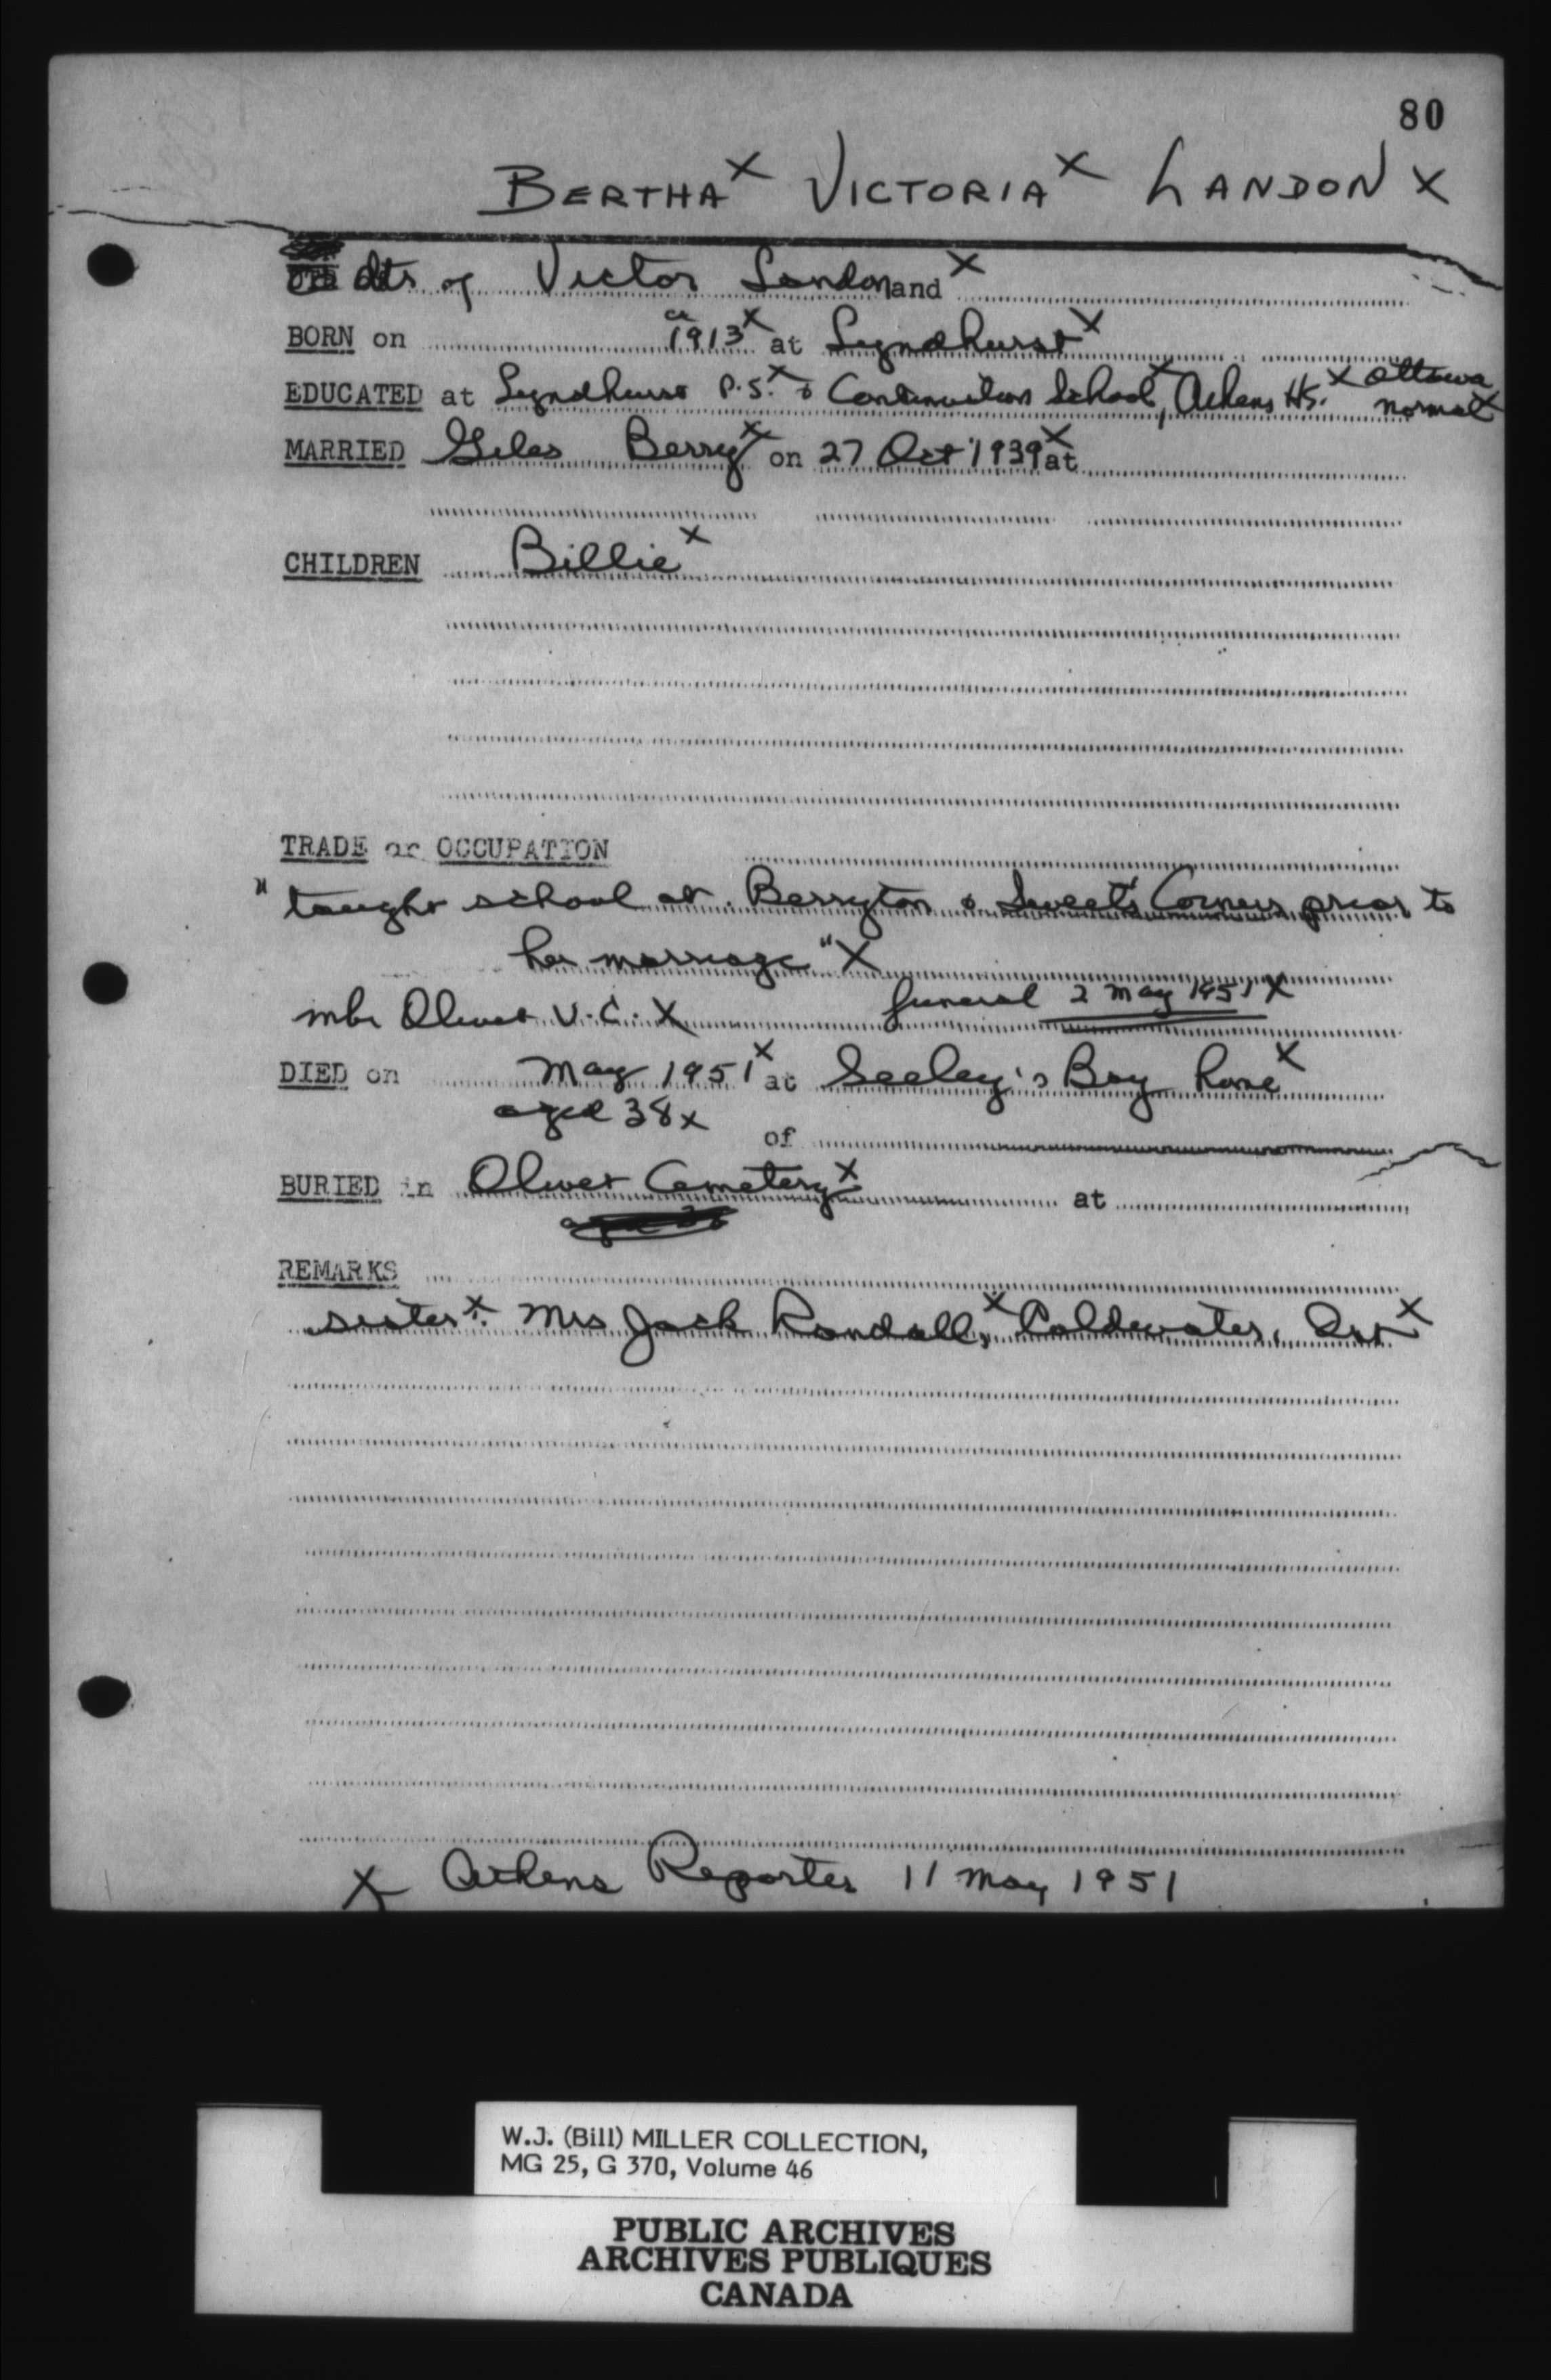 80
BERTHA X VICTORIA X LANDON X
dtr of Victor Landon and X
BORN on ca 1913 X at Lyndhurst X
EDUCATED at Lyndhurst P.S. X & Continuation School X, Athens HS. X Ottawa
Normal X
MARRIED Giles Berry X on 27 Oct 1939 X at
CHILDREN Billie X
TRADE or OCCUPATION
"taught school at Berryton & Sweet's Corners prior to
her marriage" X
mbr Olivet U.C. X funeral 2 May 1951 X
DIED on May 1951 X at Seeley's Bay home X
aged 38 X
of
BURIED in Olivet Cemetery X at
REMARKS
sister X: Mrs Jack Randall, X Coldwater, Ont X
X Athens Reporter 11 May 1951
W.J. (Bill) MILLER COLLECTION,
MG 25, G 370, Volume 46
PUBLIC ARCHIVES
ARCHIVES PUBLIQUES
CANADA